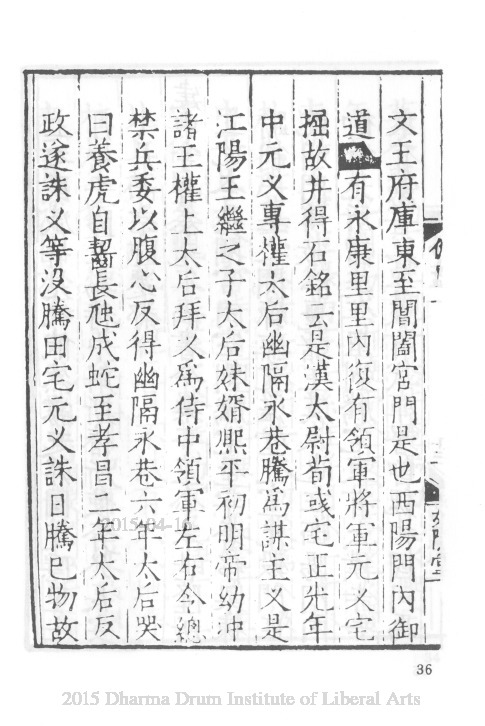 文王府庫東至閶闔宮門是也西陽門內御
道有永康里里內復有領軍將軍元乂宅
掘故井得石銘云是漢太尉荀彧宅正光年
中元乂專權太后幽隔永巷騰爲謀主乂是
江陽王繼之子太后妹婿熈平初明帝幼冲
諸王權上太后拜乂爲侍中領軍左右令總
禁兵委以腹心反得幽隔永巷六年太后哭
曰養虎自齧長虺成蛇至孝昌二年太后反
政遂誅乂等沒騰田宅元乂誅日騰巳物故
36
2015-04-16
2015 Dharma Drum Institute of Liberal Arts